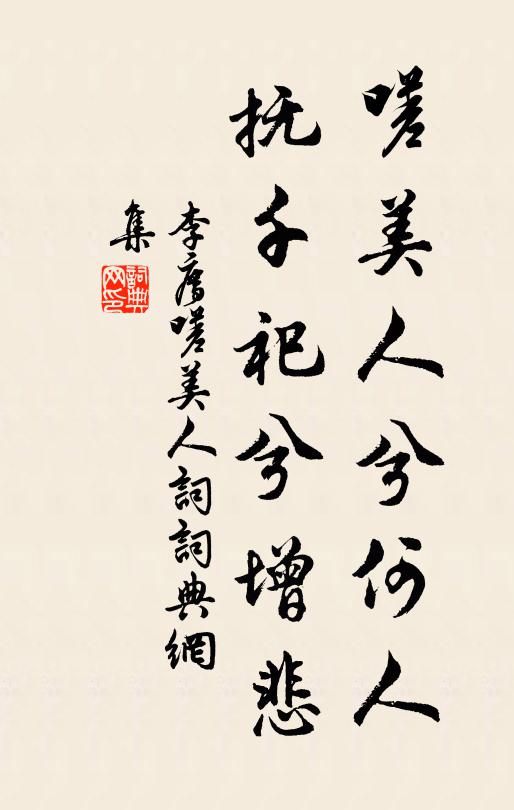 嗟美人兮何人
抚千祀兮增悲
李膺嗟美人詞詞典網
集
詞典
网印